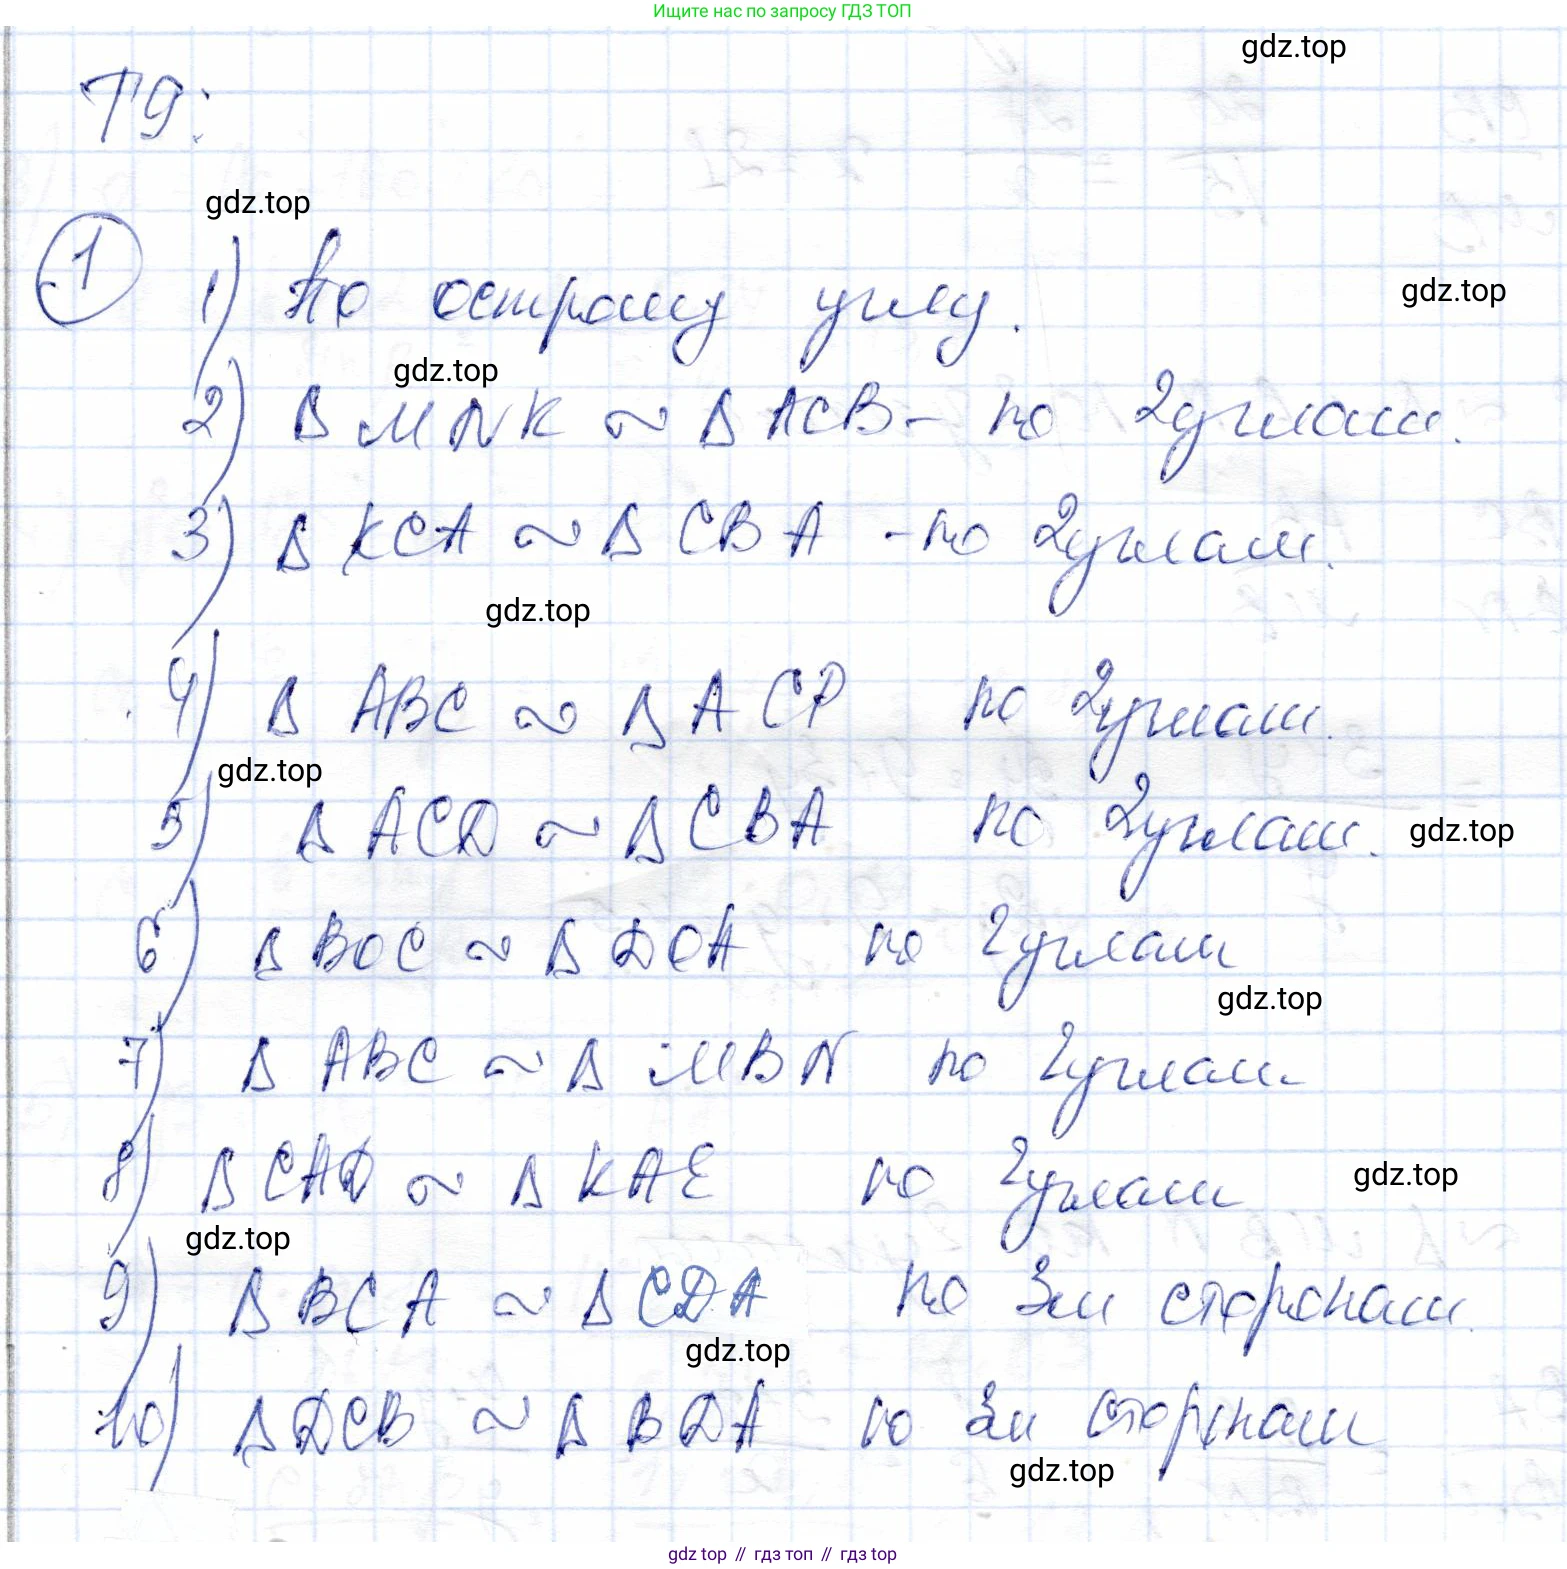 Ищите нас по запросу ГДЗ ТОП
gdz.top
Т9:
gdz.top
1
1) По острому углу.
gdz.top
gdz.top
2) Δ MNK ~ Δ ACB - по 2 углам.
3) Δ KCA ~ Δ CBA - по 2 углам.
gdz.top
4) Δ ABC ~ Δ ACP по 2 углам.
gdz.top
5) Δ ACD ~ Δ CBA по 2 углам.
gdz.top
6) Δ BOC ~ Δ DOA по 2 углам
gdz.top
7) Δ ABC ~ Δ MBN по 2 углам.
8) Δ CAD ~ Δ KAE по 2 углам
gdz.top
gdz.top
9) Δ BCA ~ Δ CDA по 3м сторонам.
gdz.top
10) Δ DCB ~ Δ BDA по 3м сторонам
gdz.top
gdz top // гдз топ // гдз top